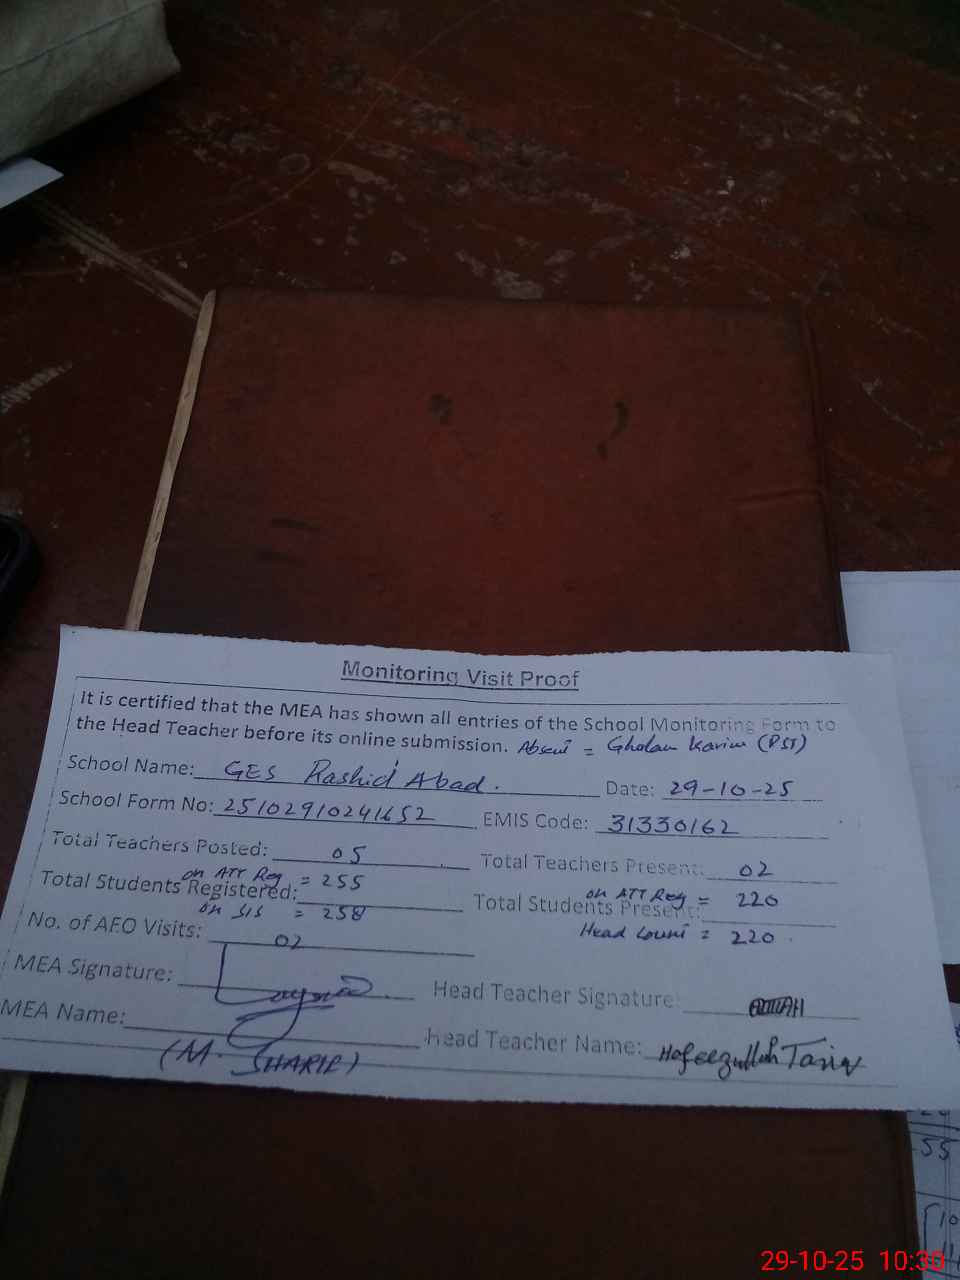 Monitoring Visit Proof
It is certified that the MEA has shown all entries of the School Monitoring Form to
the Head Teacher before its online submission. Absent = Gholam Karim (PST)
School Name: GES Rashid Abad. Date: 29-10-25
School Form No: 25102910241652 EMIS Code: 31330162
Total Teachers Posted: 05 Total Teachers Present: 02
on ATT Reg = 255 on ATT Reg = 220
Total Students Registered: Total Students Present:
on SIS = 258 Head Count = 220
No. of AEO Visits: 02
MEA Signature: Head Teacher Signature:
MEA Name: Head Teacher Name: Hafeezullah Tariq
(M. SHARIF)
55
10
29-10-25 10:30